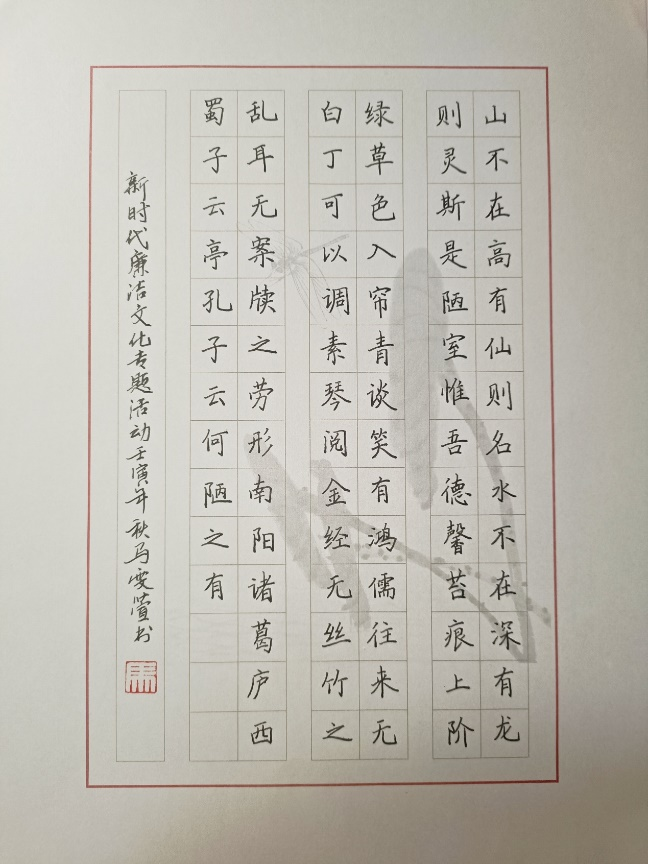 山不在高有仙则名水不在深有龙
则灵斯是陋室惟吾德馨苔痕上阶
绿草色入帘青谈笑有鸿儒往来无
白丁可以调素琴阅金经无丝竹之
乱耳无案牍之劳形南阳诸葛庐西
蜀子云亭孔子云何陋之有
新时代廉洁文化专题活动壬寅年秋马雯萱书